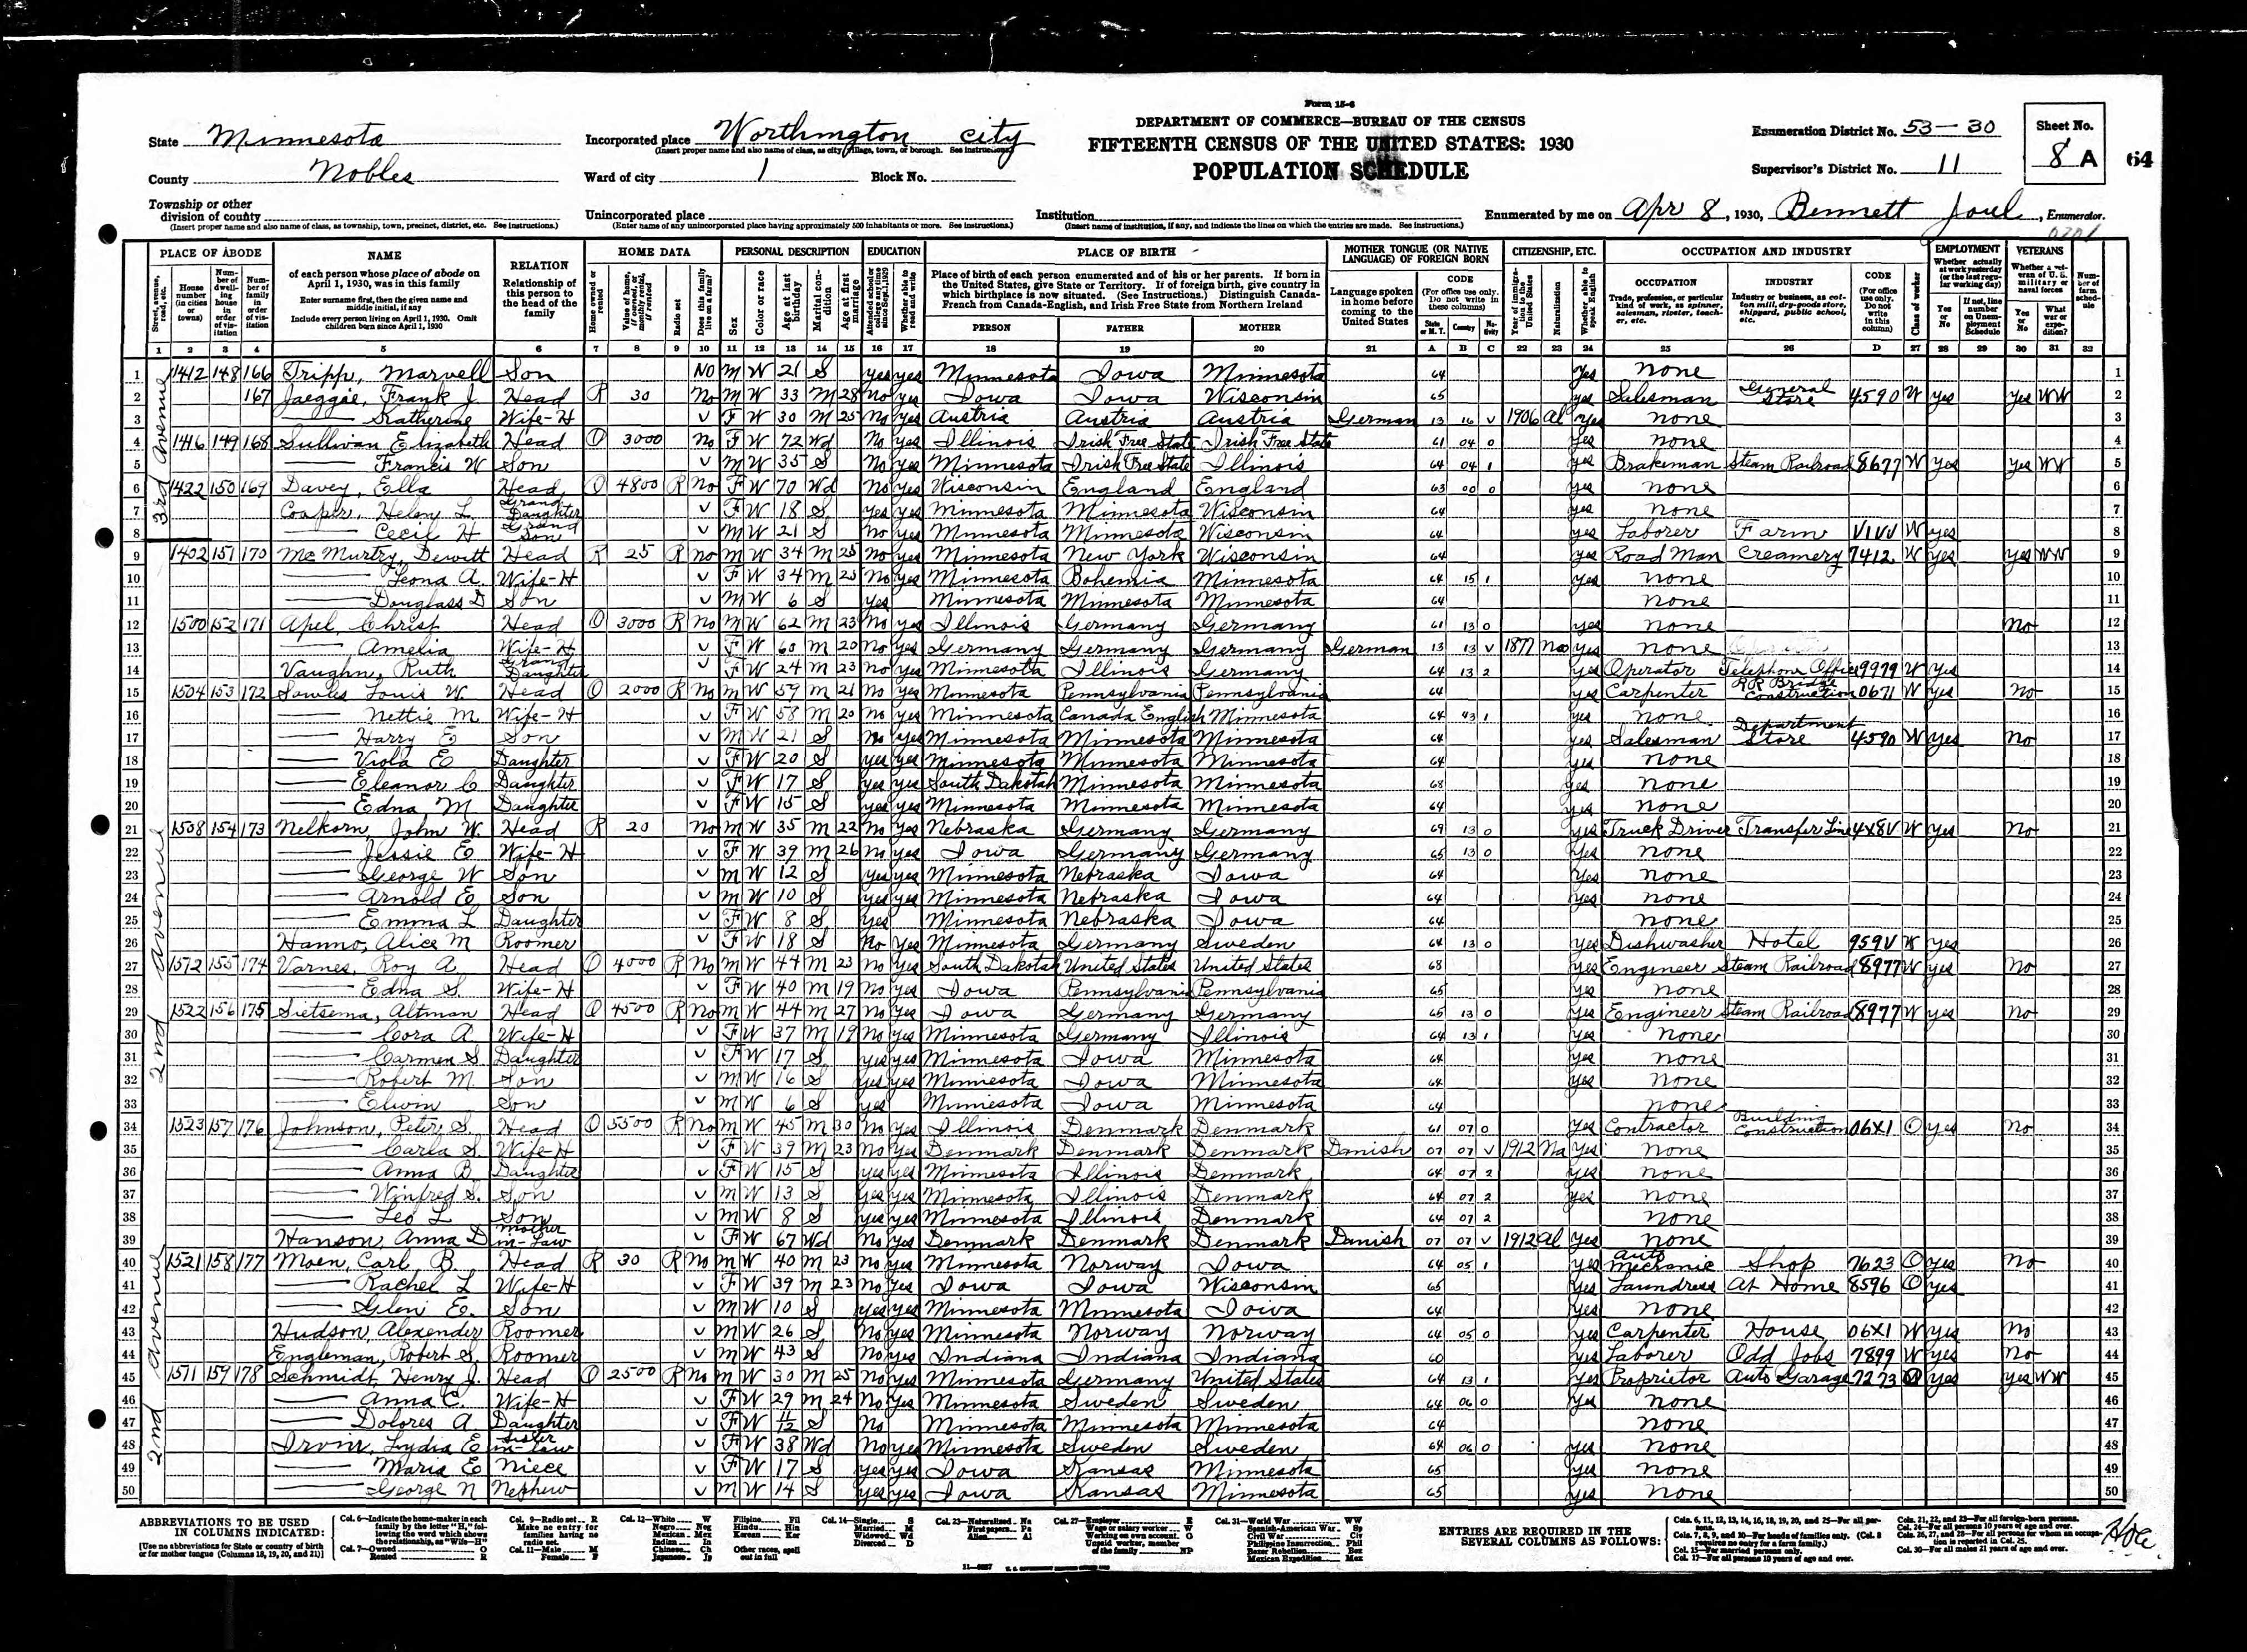 Form 15-6
DEPARTMENT OF COMMERCE—BUREAU OF THE CENSUS
FIFTEENTH CENSUS OF THE UNITED STATES: 1930
POPULATION SCHEDULE
State Minnesota
County Nobles
Township or other division of county
(Insert proper name and also name of class, as township, town, precinct, district, etc. See instructions.)
Incorporated place Worthington city
(Insert proper name and also name of class, as city, village, town, or borough. See instructions.)
Ward of city 1 Block No.
Unincorporated place
(Enter name of any unincorporated place having approximately 500 inhabitants or more. See instructions.)
Institution
(Insert name of institution, if any, and indicate the lines on which the entries are made. See instructions.)
Enumeration District No. 53-30
Supervisor's District No. 11
Sheet No. 8 A
64
Enumerated by me on Apr 8, 1930, Bennett Joul, Enumerator.
PLACE OF ABODE NAME RELATION HOME DATA PERSONAL DESCRIPTION EDUCATION PLACE OF BIRTH MOTHER TONGUE (OR NATIVE LANGUAGE) OF FOREIGN BORN CITIZENSHIP, ETC. OCCUPATION AND INDUSTRY EMPLOYMENT VETERANS
1 2 3 4 5 6 7 8 9 10 11 12 13 14 15 16 17 18 19 20 21 A B C 22 23 24 25 26 D 27 28 29 30 31 32
3rd Avenue
1 1412 148 166 Tripp, Marvell Son No M W 21 S yes yes Minnesota Iowa Minnesota 64 Yes none 1
2 167 Jaeggae, Frank J. Head R 30 No M W 33 M 28 No yes Iowa Iowa Wisconsin 65 yes Salesman General Store 4590 W yes Yes WW 2
3 Katherine Wife-H v F W 30 M 25 No yes Austria Austria Austria German 13 16 v 1906 Al yes none 3
4 1416 149 168 Sullivan Elizabeth Head O 3000 No F W 72 Wd No yes Illinois Irish Free State Irish Free State 61 04 0 Yes none 4
5 Francis W Son v M W 35 S No Yes Minnesota Irish Free State Illinois 64 04 1 yes Brakeman Steam Railroad 8677 W yes yes WW 5
6 1422 150 169 Davey, Ella Head O 4800 R No F W 70 Wd No Yes Wisconsin England England 63 00 0 yes none 6
7 Cooper, Helen L. Grand Daughter v F W 18 S Yes Yes Minnesota Minnesota Wisconsin 64 yes none 7
8 Cecil H Grand Son v M W 21 S no yes Minnesota Minnesota Wisconsin 64 yes Laborer Farm V1VV W yes 8
9 1402 151 170 McMurtry, Dewitt Head R 25 R no M W 34 M 25 no yes Minnesota New York Wisconsin 64 yes Road Man Creamery 7412 W yes yes WW 9
10 Leona A. Wife-H v F W 34 M 25 No yes Minnesota Bohemia Minnesota 64 15 1 yes none 10
11 Douglass D Son v M W 6 S Yes Minnesota Minnesota Minnesota 64 none 11
12 1500 152 171 Apel Christ Head O 3000 R No M W 62 M 23 No yes Illinois Germany Germany 61 13 0 yes none No 12
13 Amelia Wife-H v F W 60 M 20 No yes Germany Germany Germany German 13 13 v 1877 Na yes none 13
14 Vaughn, Ruth Grand Daughter v F W 24 M 23 no yes Minnesota Illinois Germany 64 13 2 yes Operator Telephone Office 9979 W Yes 14
15 1504 153 172 Sowles Louis W. Head O 2000 R No M W 59 M 21 No yes Minnesota Pennsylvania Pennsylvania 64 yes Carpenter RR Bridge Construction 0671 W yes No 15
16 Nettie M Wife-H v F W 58 M 20 no yes Minnesota Canada English Minnesota 64 43 1 yes none 16
17 Harry E Son v M W 21 S No yes Minnesota Minnesota Minnesota 64 yes Salesman Department Store 4590 W yes No 17
18 Viola E Daughter v F W 20 S yes yes Minnesota Minnesota Minnesota 64 yes none 18
19 Eleanor C Daughter v F W 17 S yes yes South Dakotah Minnesota Minnesota 68 yes none 19
20 Edna M Daughter v F W 15 S yes yes Minnesota Minnesota Minnesota 64 yes none 20
2nd Avenue
21 1508 154 173 Nelkorn, John W. Head R 20 No M W 35 M 22 No yes Nebraska Germany Germany 69 13 0 yes Truck Driver Transfer Line 4X8V W yes No 21
22 Jessie E Wife-H v F W 39 M 26 no yes Iowa Germany Germany 65 13 0 Yes none 22
23 George W Son v M W 12 S Yes yes Minnesota Nebraska Iowa 64 Yes none 23
24 Arnold E Son v M W 10 S yes yes Minnesota Nebraska Iowa 64 yes none 24
25 Emma L Daughter v F W 8 S yes Minnesota Nebraska Iowa 64 none 25
26 Hanno, Alice M Roomer v F W 18 S No Yes Minnesota Germany Sweden 64 13 0 yes Dishwasher Hotel 959V W yes 26
27 1572 155 174 Varnes, Roy A. Head O 4000 R No M W 44 M 23 no yes South Dakotah United States United States 68 Yes Engineer Steam Railroad 8977 W yes No 27
28 Edna S. Wife-H v F W 40 M 19 no yes Iowa Pennsylvania Pennsylvania 65 yes none 28
29 1522 156 175 Sietsema, Altman Head O 4500 R No M W 44 M 27 no yes Iowa Germany Germany 65 13 0 yes Engineer Steam Railroad 8977 W yes No 29
30 Cora A. Wife-H v F W 37 M 19 no yes Minnesota Germany Illinois 64 13 1 yes none 30
31 Carmen S. Daughter v F W 17 S yes yes Minnesota Iowa Minnesota 64 yes none 31
32 Robert M. Son v M W 16 S yes yes Minnesota Iowa Minnesota 64 yes none 32
33 Elwin Son v M W 6 S yes Minnesota Iowa Minnesota 64 none 33
34 1523 157 176 Johnson, Peter S. Head O 5500 R No M W 45 M 30 No Yes Illinois Denmark Denmark 61 07 0 yes Contractor Building Construction 06X1 O yes No 34
35 Carla S. Wife-H v F W 39 M 23 No Yes Denmark Denmark Denmark Danish 07 07 v 1912 Na yes none 35
36 Anna B. Daughter v F W 15 S yes yes Minnesota Illinois Denmark 64 07 2 yes none 36
37 Winfred S. Son v M W 13 S yes yes Minnesota Illinois Denmark 64 07 2 yes none 37
38 Leo L Son v M W 8 S yes yes Minnesota Illinois Denmark 64 07 2 none 38
39 Hanson, Anna D mother in-law v F W 67 Wd No yes Denmark Denmark Denmark Danish 07 07 v 1912 Al yes none 39
2nd Avenue
40 1521 158 177 Moen, Carl B. Head R 30 R No M W 40 M 23 no yes Minnesota Norway Iowa 64 05 1 yes Auto Mechanic Shop 7623 O yes No 40
41 Rachel L Wife-H v F W 39 M 23 No yes Iowa Iowa Wisconsin 65 yes Laundress At Home 8596 O yes 41
42 Glen E. Son v M W 10 S yes yes Minnesota Minnesota Iowa 64 Yes none 42
43 Hudson, Alexender Roomer v M W 26 S No yes Minnesota Norway Norway 64 05 0 yes Carpenter House 06X1 W yes No 43
44 Engleman, Robert S. Roomer v M W 43 S No yes Indiana Indiana Indiana 60 yes Laborer Odd Jobs 7899 W yes No 44
45 1511 159 178 Schmidt, Henry J. Head O 2500 R No M W 30 M 25 No yes Minnesota Germany United States 64 13 1 yes Proprietor Auto Garage 7273 O yes yes WW 45
46 Anna C. Wife-H v F W 29 M 24 No yes Minnesota Sweden Sweden 64 06 0 yes none 46
47 Dolores A. Daughter v F W S No Minnesota Minnesota Minnesota 64 none 47
48 Irvin, Lydia E Sister in-law v F W 38 Wd No yes Minnesota Sweden Sweden 64 06 0 yes none 48
49 Maria E Niece v F W 17 S yes yes Iowa Kansas Minnesota 65 yes none 49
50 George N Nephew v M W 14 S yes yes Iowa Kansas Minnesota 65 yes none 50
ABBREVIATIONS TO BE USED IN COLUMNS INDICATED:
[Use no abbreviations for State or country of birth or for mother tongue (Columns 18, 19, 20, and 21)]
ENTRIES ARE REQUIRED IN THE SEVERAL COLUMNS AS FOLLOWS: